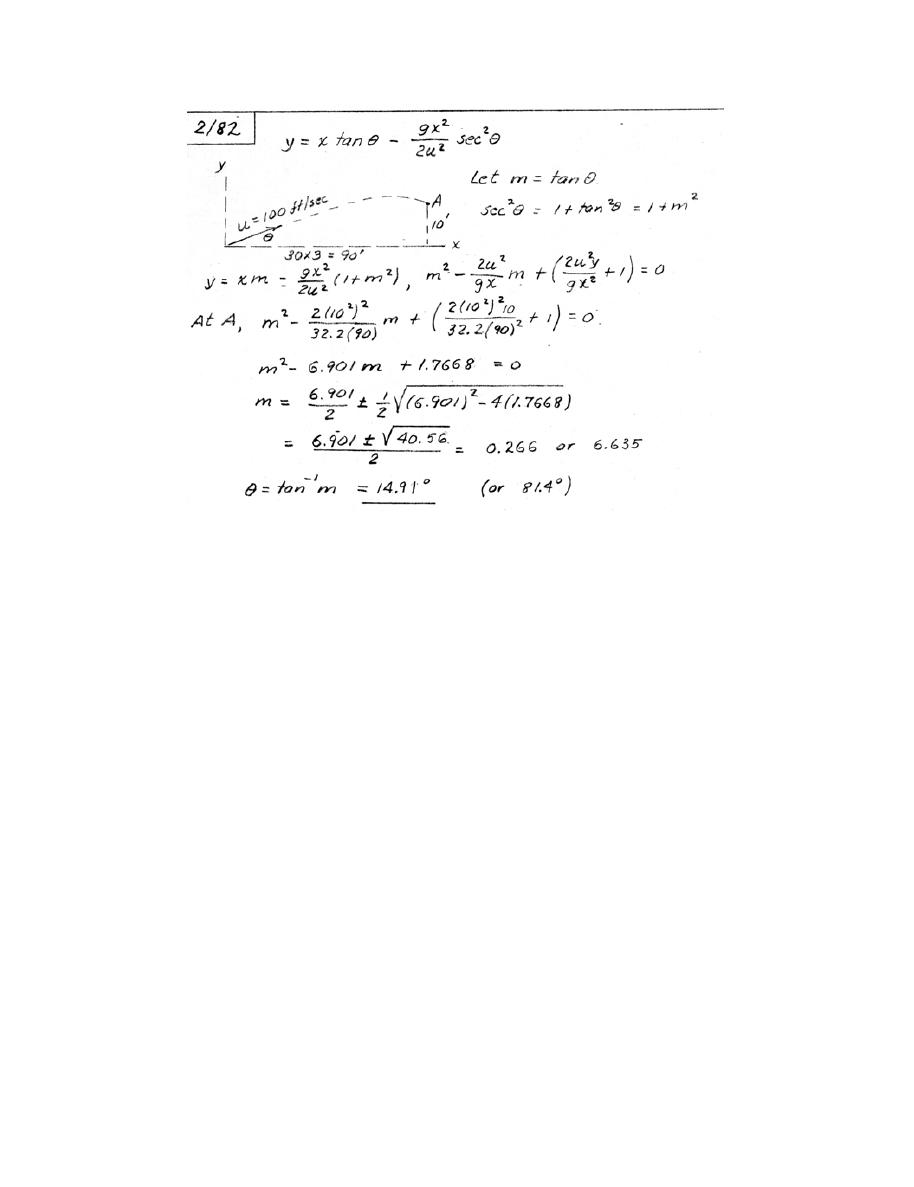 2/82
y = x tan θ - gx²/2u² sec²θ
y
Let m = tan θ
u = 100 ft/sec
θ
A
10'
sec²θ = 1 + tan²θ = 1 + m²
x
30×3 = 90'
y = xm - gx²/2u² (1+m²), m² - 2u²/gx m + (2u²y/gx² + 1) = 0
At A, m² - 2(10²)²/32.2(90) m + (2(10²)²10/32.2(90)² + 1) = 0.
m² - 6.901 m + 1.7668 = 0
m = 6.901/2 ± 1/2 √((6.901)² - 4(1.7668))
= 6.901 ± √40.56/2 = 0.266 or 6.635
θ = tan⁻¹m = 14.91° (or 81.4°)